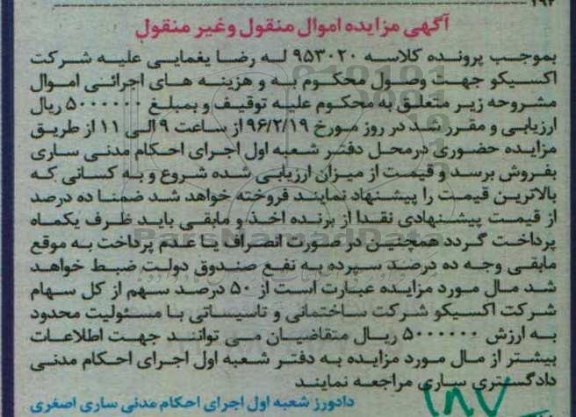 ۱۹۲
آگهی مزایده اموال منقول وغیر منقول
بموجب پرونده کلاسه ۹۵۳۰۲۰ له رضا یغمایی علیه شرکت
اکسیکو جهت وصول محکوم به و هزینه های اجرائی اموال
مشروحه زیر متعلق به محکوم علیه توقیف و بمبلغ ۵۰۰۰۰۰۰ ریال
ارزیابی و مقرر شد در روز مورخ ۹۶/۲/۱۹ از ساعت ۹ الی ۱۱ از طریق
مزایده حضوری درمحل دفتر شعبه اول اجرای احکام مدنی ساری
بفروش برسد و قیمت از میزان ارزیابی شده شروع و به کسانی که
بالاترین قیمت را پیشنهاد نمایند فروخته خواهد شد ضمنا ده درصد
از قیمت پیشنهادی نقدا از برنده اخذ و مابقی باید ظرف یکماه
پرداخت گردد همچنین در صورت انصراف یا عدم پرداخت به موقع
مابقی وجه ده درصد سپرده به نفع صندوق دولت ضبط خواهد
شد مال مورد مزایده عبارت است از ۵۰ درصد سهم از کل سهام
شرکت اکسیکو شرکت ساختمانی و تاسیساتی با مسئولیت محدود
به ارزش ۵۰۰۰۰۰۰ ریال متقاضیان می توانند جهت اطلاعات
بیشتر از مال مورد مزایده به دفتر شعبه اول اجرای احکام مدنی
دادگستری ساری مراجعه نمایند
دادورز شعبه اول اجرای احکام مدنی ساری اصغری
۱۸۷